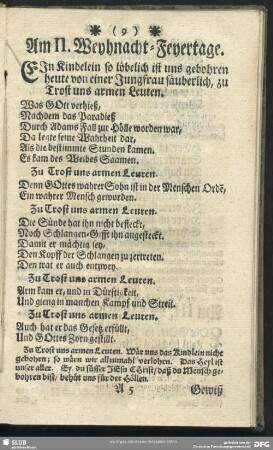 (9)
Am II. Weyhnacht-Feyertage.
EJn Kindelein so löbelich ist uns gebohren
heute von einer Jungfrau säuberlich, zu
Trost uns armen Leuten.
Was GOtt verhieß,
Nachdem das Paradieß
Durch Adams Fall zur Hölle worden war,
Da legte seine Wahrheit dar,
Als die bestimmte Stunden kamen.
Es kam des Weibes Saamen.
Zu Trost uns armen Leuten.
Denn GOttes wahrer Sohn ist in der Menschen Ordē,
Ein wahrer Mensch geworden.
Zu Trost uns armen Leuten.
Die Sünde hat ihn nicht befleckt,
Noch Schlangen-Gifft ihn angesteckt.
Damit er mächtig sey,
Den Kopff der Schlangen zu zertreten.
Den trat er auch entzwey.
Zu Trost uns armen Leuten.
Arm kam er, und in Dürftigkeit,
Und gieng in manchen Kampf und Streit.
Zu Trost uns armen Leuten.
Auch hat er das Gesetz erfüllt,
Und GOttes Zorn gestillt.
Zu Trost uns armen Leuten. Wär uns das Kindlein nicht
gebohren; so wärn wir allzumahl verlohren. Das Heyl ist
unser aller. Ey, du süsser JEsu Christ, daß du Mensch ge-
bohren bist, behüt uns für der Höllen.
A 5 Gewiß
SLUB